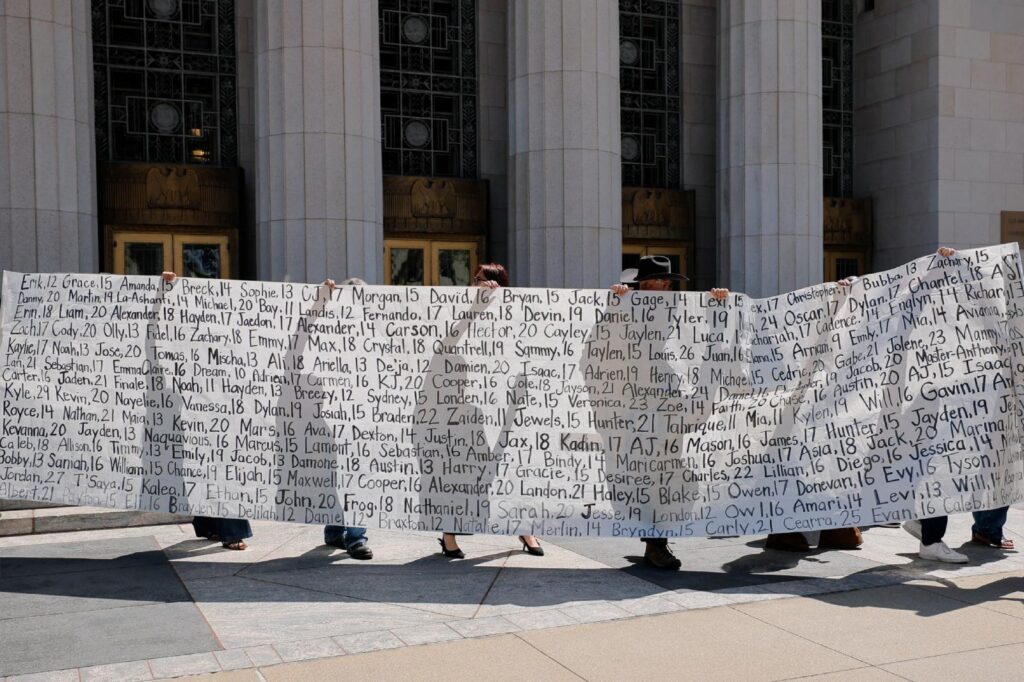 Erik, 12 Grace, 15 Amanda, Breck, 14 Sophie, 13 Morgan, 15 David, Bryan, 15 Jack, Gage, 14 Christopher, Bubba, 13 Zachary, 15
Danny, 20 Martin, 19 La-Ashanti, 14 Michael, 20 Bay, 11 Landis, 12 Fernando, 17 Lauren, 18 Devin, 19 Daniel, 16 Tyler, 19 24 Oscar, Dylan, 17 Chantel,
Erin, 18 Liam, 20 Alexander, 18 Hayden, 17 Jaedon, 17 Alexander, 14 Carson, 16 Hector, 20 Cayley, 15 Jaylen, 21 Luca, 17 Cadence, Englyn, 14 Richard,
Zach, 17 Cody, 20 Olly, 13 Fidel, 16 Zachary, 18 Emmy, 17 Max, 18 Crystal, 18 Quantrell, 19 Sammy, 16 Taylen, 15 Louis, 26 Juan, 16 Arman, 9 Emily, Mia, 14 Avianna,
Kaylie, 17 Noah, 13 Jose, 20 Tomas, 16 Mischa, 13 Ali, 18 Ariella, 13 Deja, 12 Damien, 20 Isaac, 17 Adrien, 19 Henry, 18 Michael, Cedric, Gabe, 21 Jolene, 23 Manny,
Ean, 21 Sebastian, 17 EmmaClaire, 16 Dream, 10 Adrien, Carmen, 16 KJ, 20 Cooper, 16 Cole, 18 Jayson, 21 Alexander, 24 Daniel, 16 Chase, Jacob, 20 Master-Anthony,
Carter, 16 Jaden, 21 Finale, 18 Noah, 11 Hayden, 13 Breezy, 12 Sydney, 15 London, 16 Nate, 15 Veronica, 23 Zoe, 14 Faith, Austin, 20 AJ, 15 Isaac,
Kyle, 29 Kevin, 20 Nayelie, 16 Vanessa, 18 Dylan, 19 Josiah, 15 Braden, 22 Zaiden, 11 Jewels, 15 Hunter, 21 Tabrique, 11 Mia, 11 Kylen, 14 Will, 16 Gavin, 17
Royce, 14 Nathan, 21 Maia, 13 Kevin, 20 Mars, 16 Ava, 17 Dexton, 14 Justin, 18 Jax, 18 Kadin, 17 AJ, 16 Mason, 16 James, 17 Hunter, 15 Jayden, 19
Kevanna, 20 Jayden, 13 Naquavious, 16 Marcus, 15 Lamont, 16 Sebastian, 16 Amber, 17 Bindy, 14 Maricarmen, 16 Joshua, 17 Asia, 18 Jack, 20 Marina,
Caleb, 18 Allison, 16 Timmy, 13 Emily, 19 Jacob, 13 Damone, 18 Austin, 13 Harry, Gracie, 15 Desiree, 17 Charles, 22 Lillian, 16 Diego, 16 Jessica, 14
Bobby, 13 Saniah, 16 William, 15 Chance, 19 Elijah, 15 Maxwell, 17 Cooper, 16 Alexander, 20 Landon, 21 Haley, 15 Blake, 15 Owen, 17 Donovan, 16 Evy, 16 Tyson, 17
Jordan, 27 T'Saya, 15 Kalea, 17 Ethan, 15 John, 20 Frog, 18 Nathaniel, 19 Sarah, 20 Jesse, 19 London, 12 Owl, 16 Amari, 14 Levi, 13 Will, 14
16 Brayden, 15 Delilah, 12 Braxton, 12 Natalie, 17 Merlin, 14 Bryndyn, 15 Carly, 21 Cearra, 25 Evan, 16 Caleb,